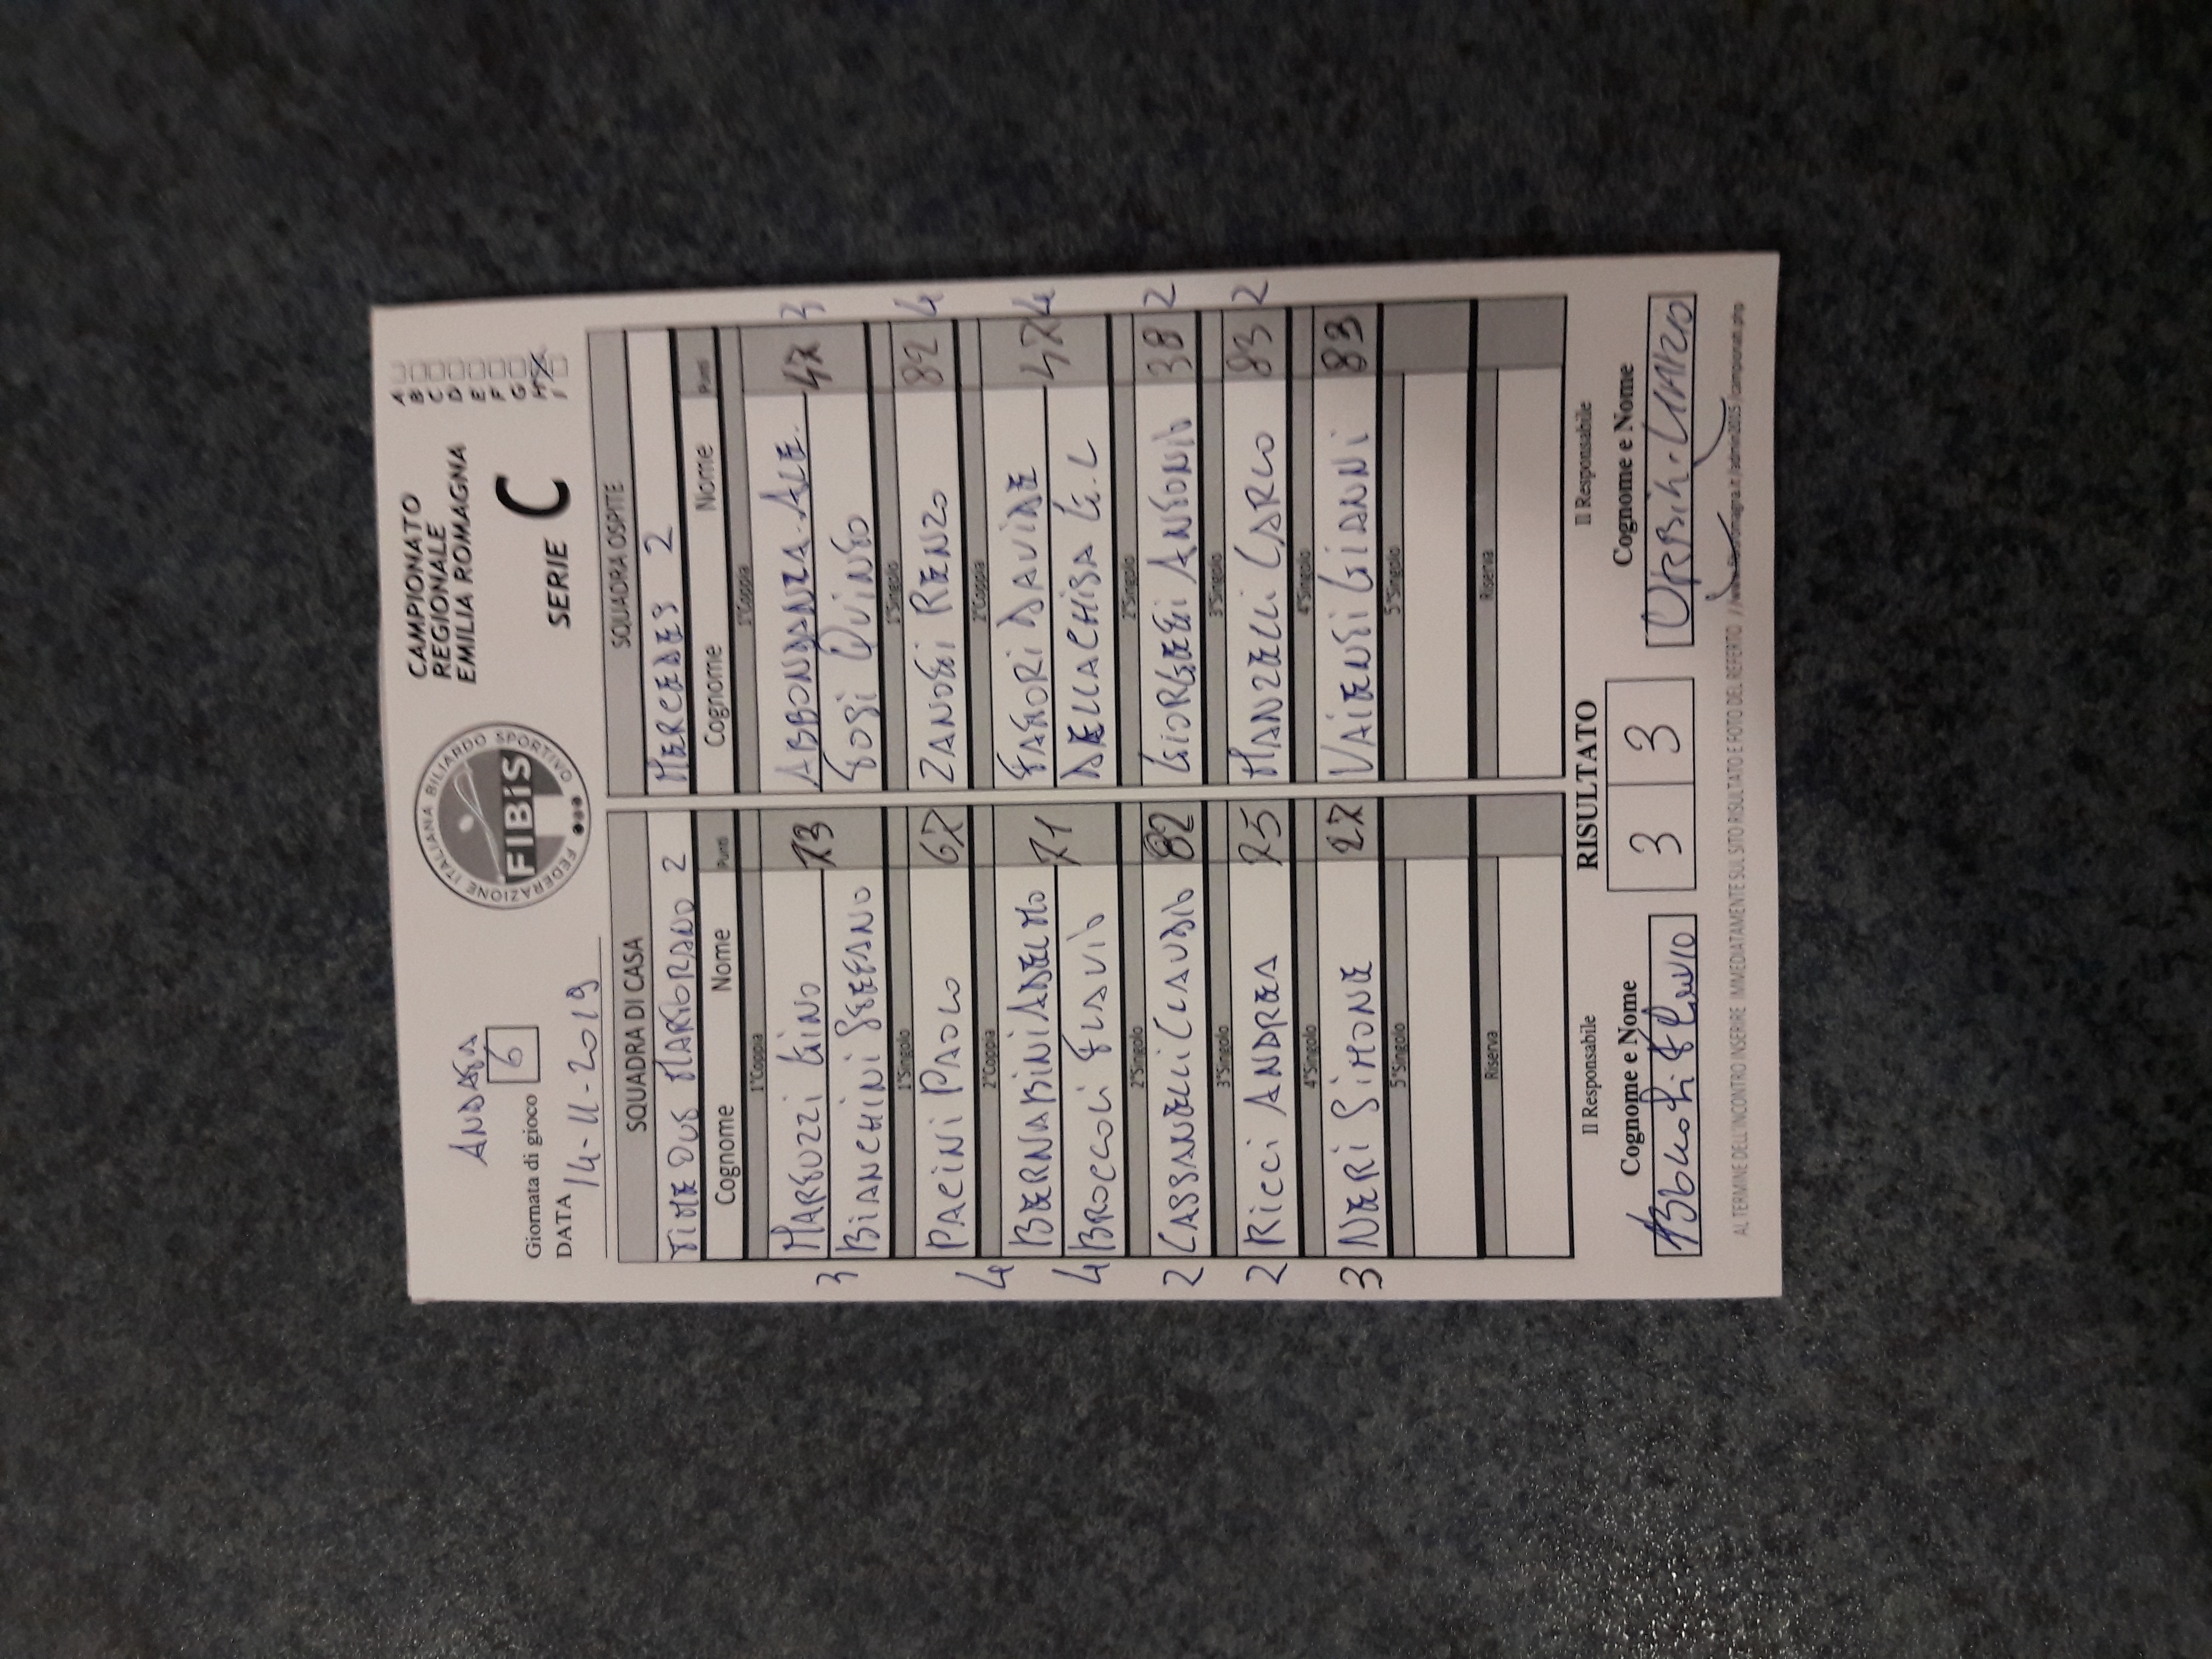 ANDATA
Giornata di gioco 6
DATA 14-11-2019
FEDERAZIONE ITALIANA BILIARDO SPORTIVO
FIBiS
CAMPIONATO
REGIONALE
EMILIA ROMAGNA
SERIE C
A
B
C
D
E
F
G
H X
I
SQUADRA DI CASA
TIME OUT MARIORANO 2
Cognome Nome Punti
3
1°Coppia
MARGUZZI GINO 73
BIANCHINI STEFANO
1°Singolo
4 PACINI PAOLO 67
2°Coppia
BERNABINI ADELMO 71
4 BROCCOLI FLAVIO
2°Singolo
2 CASSANELLI CLAUDIO 82
3°Singolo
2 RICCI ANDREA 75
4°Singolo
3 NERI SIMONE 27
5°Singolo
Riserva
SQUADRA OSPITE
MERCEDES 2
Cognome Nome Punti
1°Coppia
ABBONDANZA ALE. 47 3
TOSI QUINTO
1°Singolo
ZANOTTI RENZO 82 4
2°Coppia
FATTORI DAVIDE 47 4
DELLACHISA G.L
2°Singolo
GIORGETTI ANTONIO 38 2
3°Singolo
MANZELLI CARLO 83 2
4°Singolo
VAIENTI GIANNI 83
5°Singolo
Riserva
Il Responsabile
Cognome e Nome
RISULTATO
3 3
Il Responsabile
Cognome e Nome
AL TERMINE DELL'INCONTRO INSERIRE IMMEDIATAMENTE SUL SITO RISULTATO E FOTO DEL REFERTO